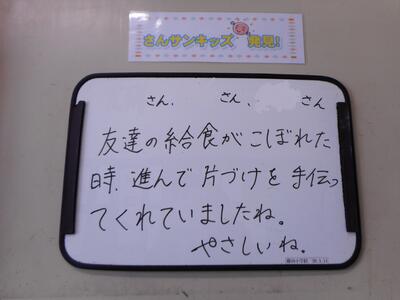 さんサンキッズ 発見!
さん、 さん、 さん
友達の給食がこぼれた
時、進んで片づけを手伝っ
てくれていましたね。
やさしいね。